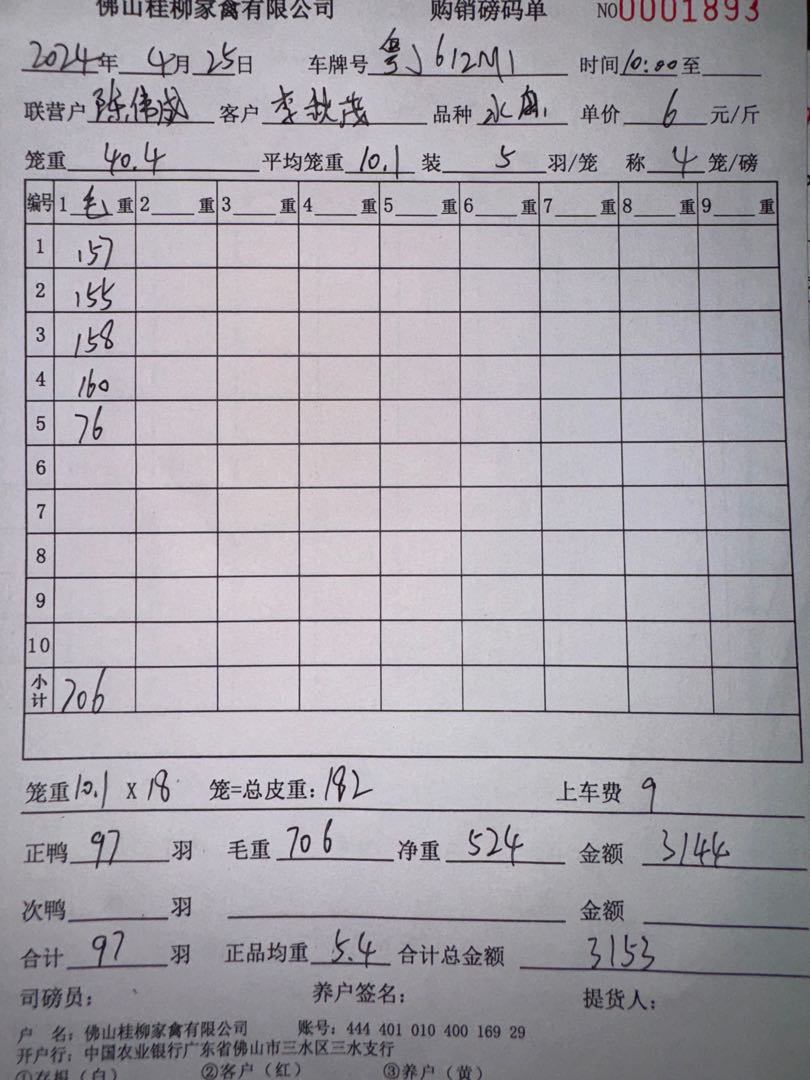 佛山桂柳家禽有限公司 购销磅码单 NO0001893
2024年 4月 25日 车牌号 粤J612M1 时间10:00至
联营户 陈伟成 客户 李秋茂 品种 水鸭 单价 6 元/斤
笼重 40.4 平均笼重 10.1 装 5 羽/笼 称 4 笼/磅
编号 1 毛 重 2 重 3 重 4 重 5 重 6 重 7 重 8 重 9 重
1 157
2 155
3 158
4 160
5 76
6
7
8
9
10
小计 706
笼重10.1 X 18 笼=总皮重:182 上车费 9
正鸭 97 羽 毛重 706 净重 524 金额 3144
次鸭 羽 金额
合计 97 羽 正品均重 5.4 合计总金额 3153
司磅员: 养户签名: 提货人:
户 名: 佛山桂柳家禽有限公司 账号: 444 401 010 400 169 29
开户行: 中国农业银行广东省佛山市三水区三水支行
①存根(白) ②客户(红) ③养户(黄)